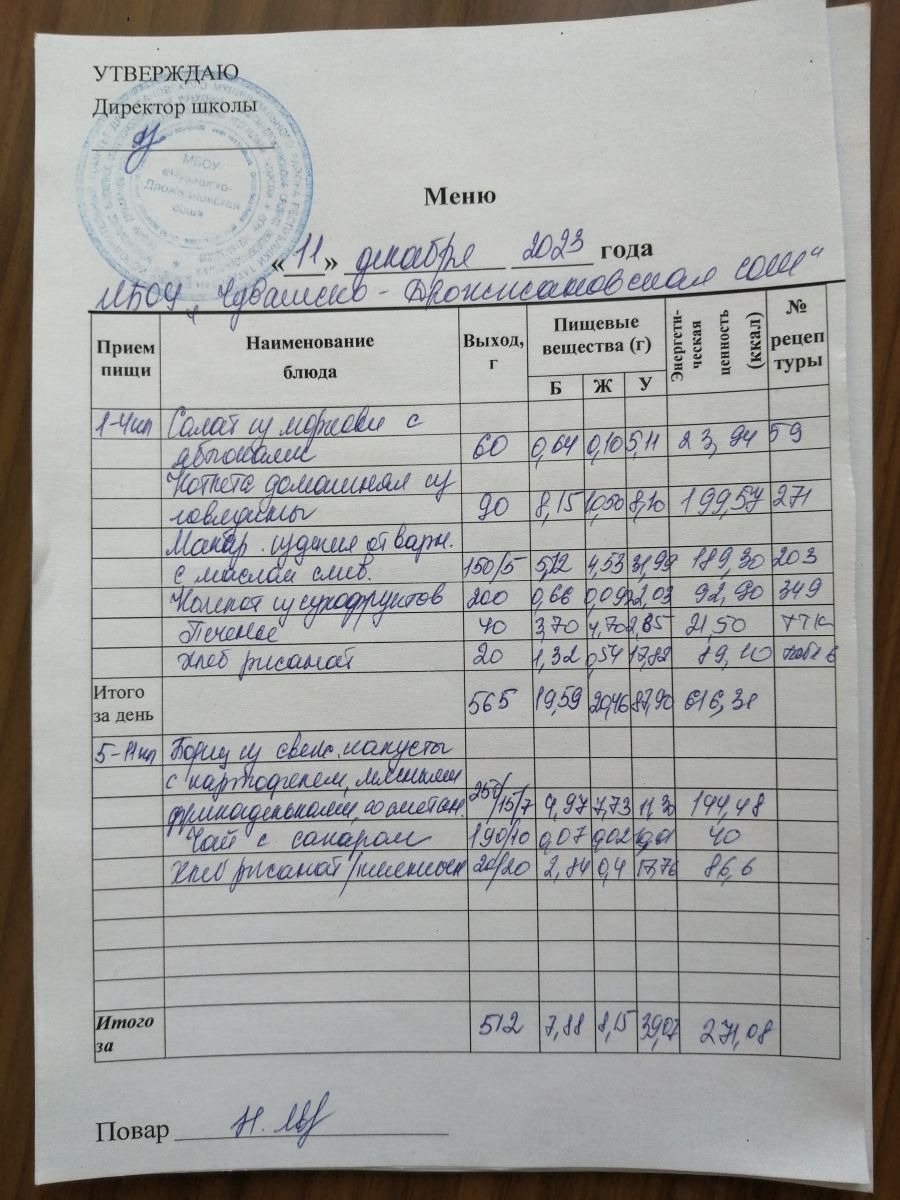 УТВЕРЖДАЮ
Директор школы
МБОУ
«Чувашско-
Дрожжановская
сош»
Меню
« 11 » декабря 2023 года
МБОУ „Чувашско - Дрожжановская сош"
Прием пищи Наименование блюда Выход, г Пищевые вещества (г) Б Ж У Энергети-ческая ценность (ккал) № рецептуры
1-4кл Салат из моркови с
яблоками 60 0,64 0,10 5,11 23,94 59
Котлета домашняя из
говядины 90 8,15 10,50 8,20 199,57 271
Макар. изделия отварн.
с маслом слив. 150/5 5,12 4,53 31,99 189,30 203
Компот из сухофруктов 200 0,66 0,09 22,03 92,90 349
Печенье 40 3,70 4,70 2,85 21,50 ТТК
Хлеб ржаной 20 1,32 0,54 17,82 89,10
Итого
за день 565 19,59 20,46 87,90 616,31
5-11кл Борщ из свеж. капусты
с картофелем, мясными
фрикадельками, со сметан. 250/15/7 4,97 7,73 11,30 144,48
Чай с сахаром 190/10 0,07 0,02 10,01 40
Хлеб ржаной/пшеничн 20/20 2,84 0,4 17,76 86,6
Итого
за 512 7,88 8,15 39,07 271,08
Повар